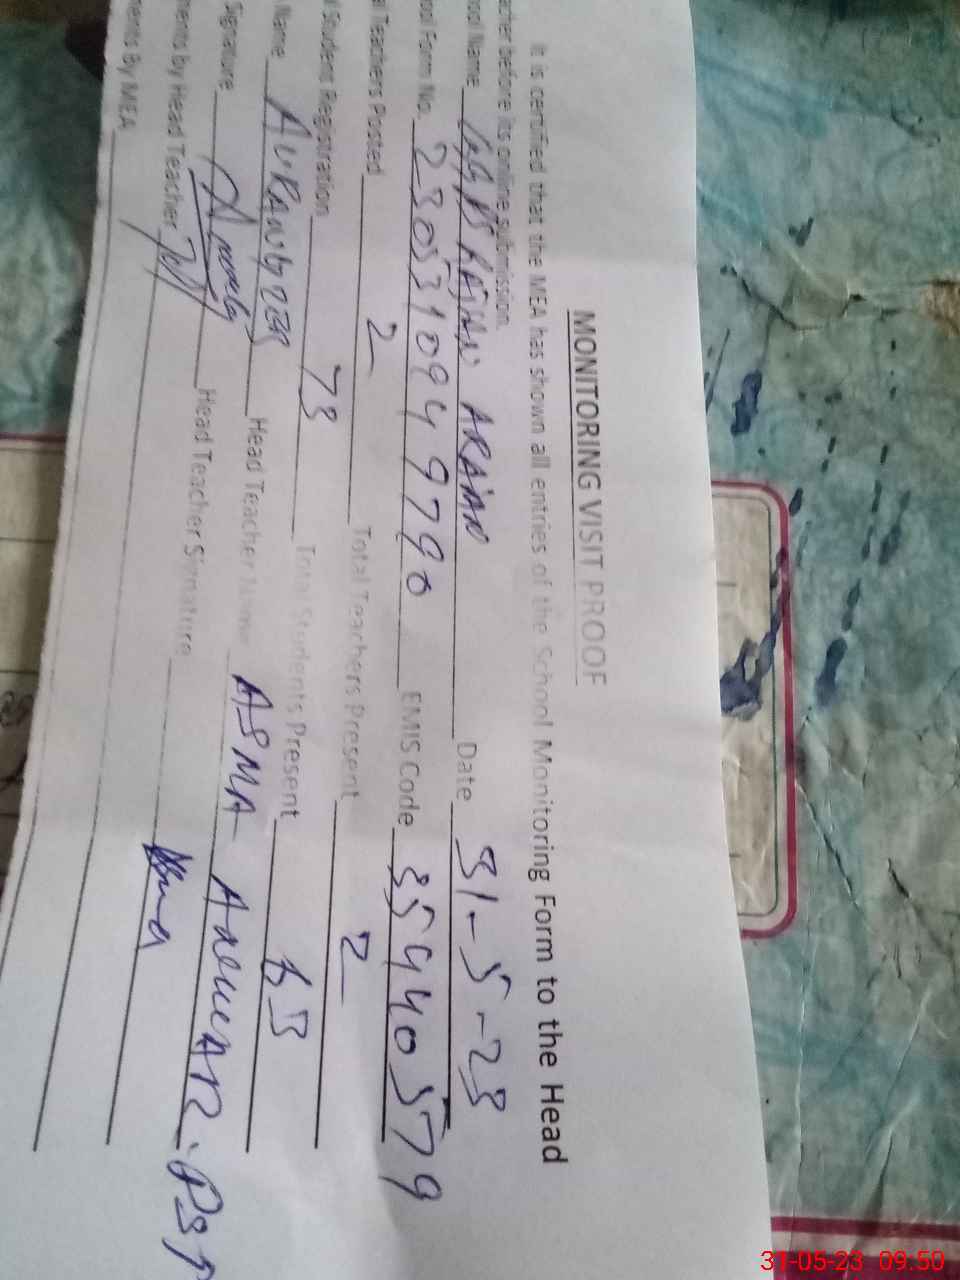 MONITORING VISIT PROOF
It is certified that the MEA has shown all entries of the School Monitoring Form to the Head
acher before its online submission.
ool Name ARAIAN Date 31-5-23
ool Form No. EMIS Code 35440579
al Teachers Posted 2 Total Teachers Present 2
l Student Registration 73 Total Students Present 63
Name AURANGZEB Head Teacher Name ASMA
Signature Head Teacher Signature
ments by Head Teacher
ments By MEA
31-05-23 09:50